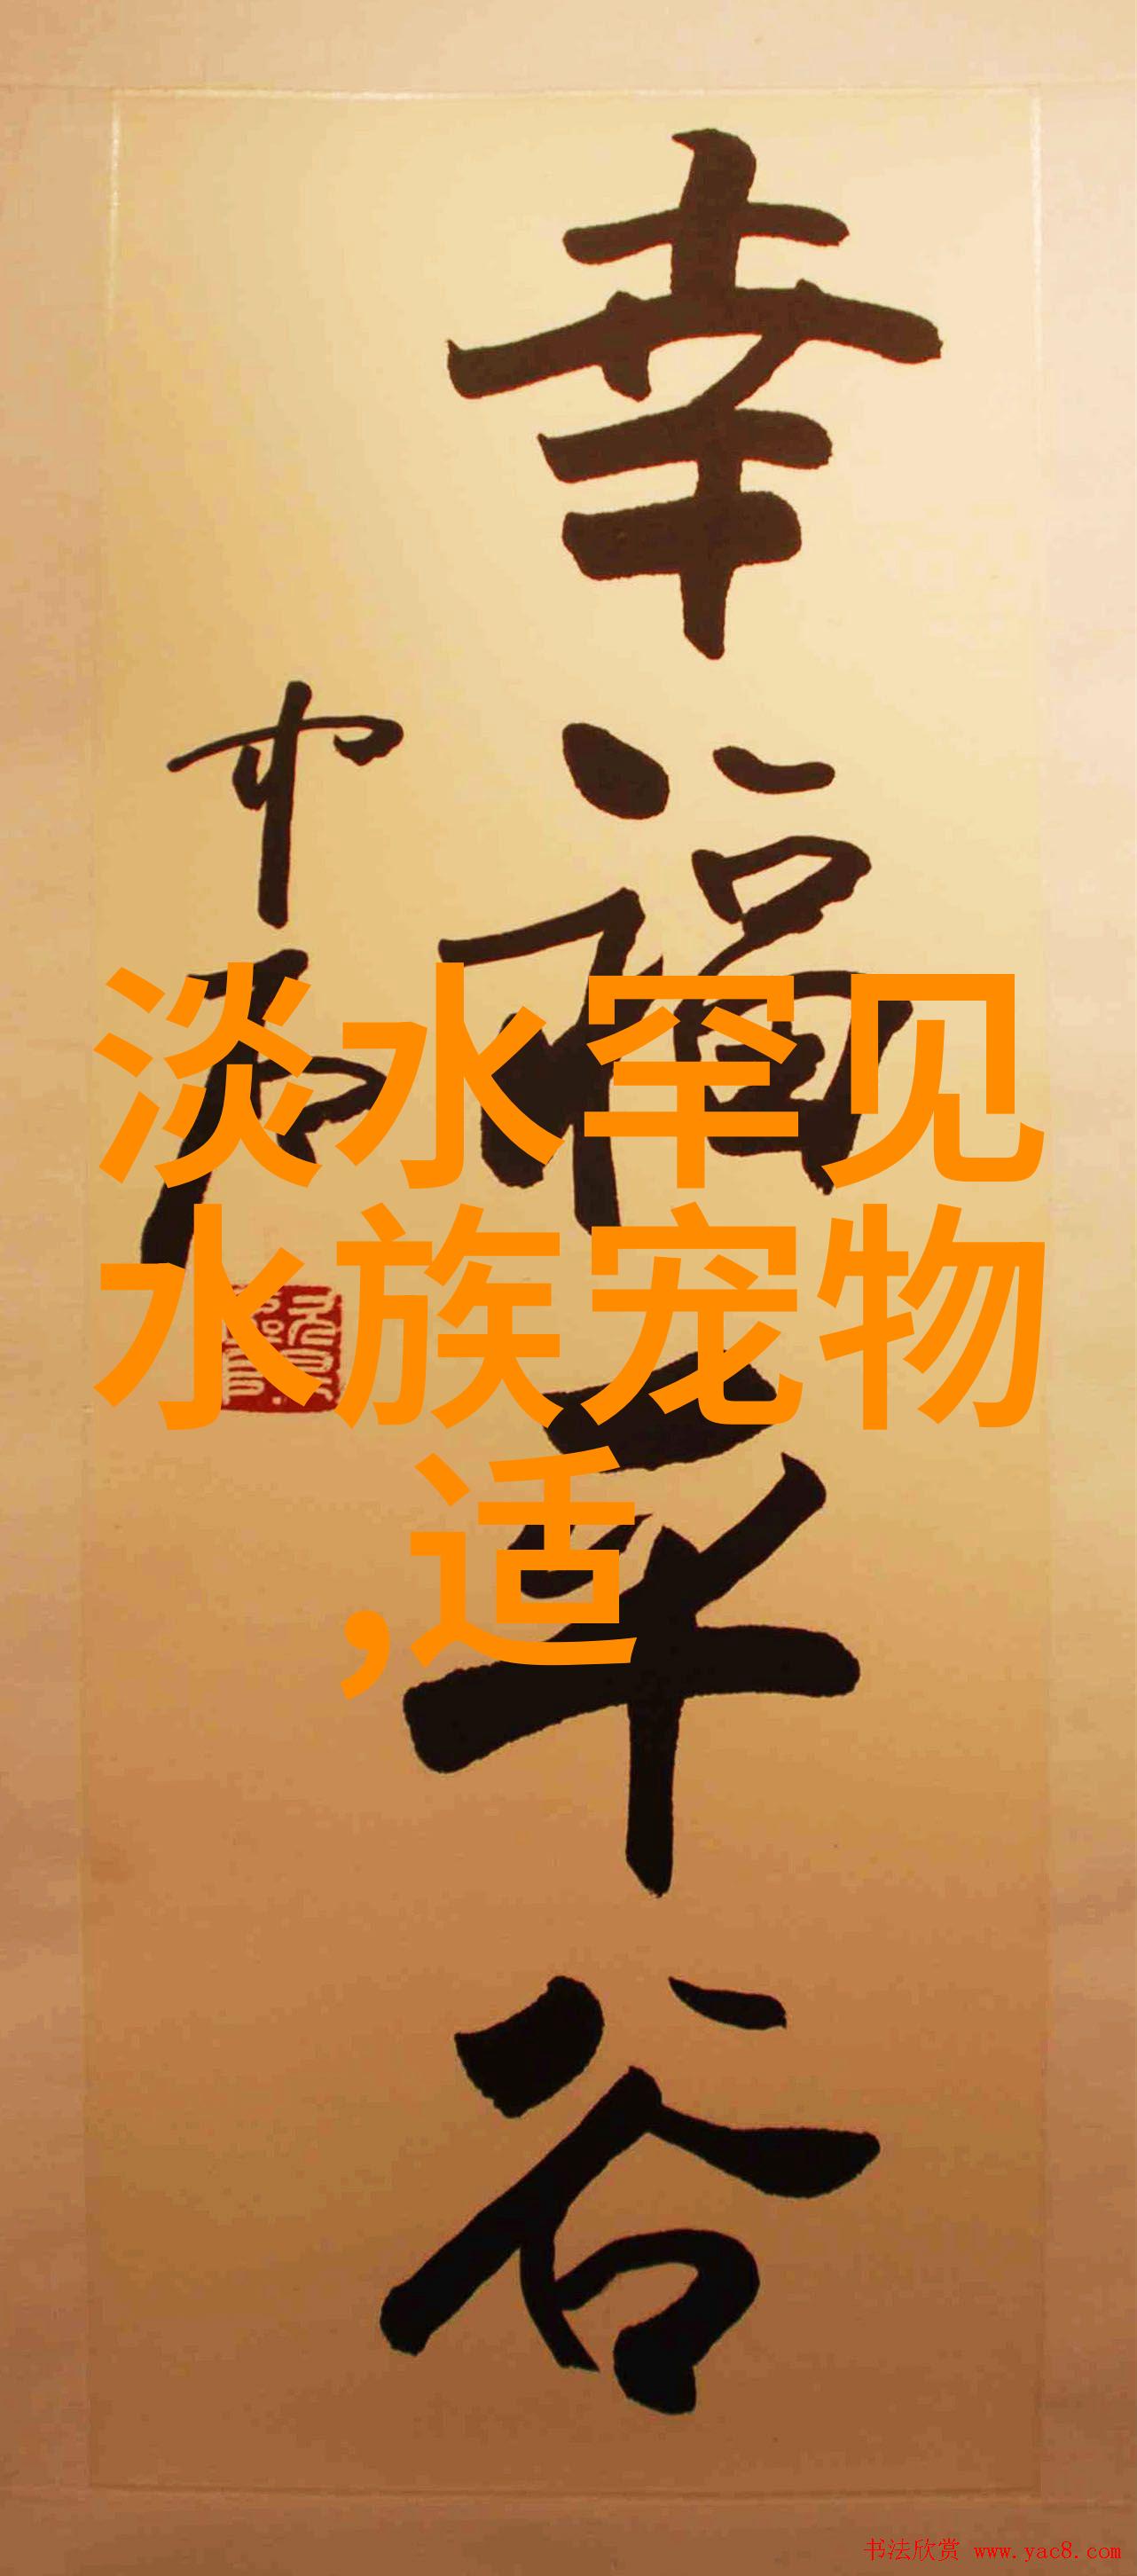 幸福平谷
中石
淡水罕见
水族宠物
,适
书法欣赏 www.yac8.com